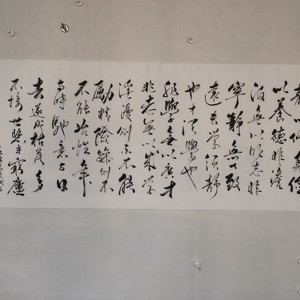 以養德非澹
泊無以明志非
寧靜無以致
遠夫學須靜
也才須學也
非學無以廣才
非志無以成學
淫漫則不能
勵精險躁則
不能治性年
與時馳意與日
去遂成枯落多
不接世悲守窮廬